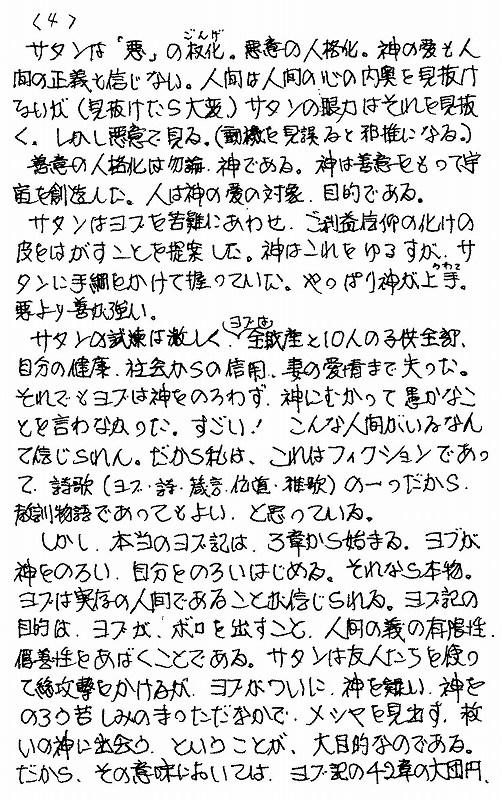 (4)
サタンは「悪」の権化(ごんげ)。悪意の人格化。神の愛も人
間の正義も信じない。人間は人間の心の内奥を見抜け
ないが(見抜けたら大変)サタンの眼力はそれを見抜
く。しかし悪意で見る。(動機を見誤ると邪推になる。)
善意の人格化は勿論、神である。神は善意をもって宇
宙を創造した。人は神の愛の対象、目的である。
サタンはヨブを苦難にあわせ、ご利益信仰の化けの
皮をはがすことを提案した。神はこれをゆるすが、サ
タンに手綱をかけて握っていた。やっぱり神が上手(うわて)。
悪より善が強い。
サタンの試煉は激しく、ヨブは全財産と10人の子供全部、
自分の健康、社会からの信用、妻の愛情まで失った。
それでもヨブは神をのろわず、神にむかって愚かなこ
とを言わなかった。すごい! こんな人間がいるなん
て信じられん。だから私は、これはフィクションであっ
て、詩歌(ヨブ・詩・箴言・伝道・雅歌)の一つだから、
教訓物語であってもよい、と思っている。
しかし、本当のヨブ記は、3章から始まる。ヨブが
神をのろい、自分をのろいはじめる。それなら本物。
ヨブは実存の人間であることが信じられる。ヨブ記の
目的は、ヨブが、ボロを出すこと、人間の義の有限性、
偽善性をあばくことである。サタンは友人たちを使っ
て総攻撃をかけるが、ヨブがついに、神を疑い、神を
のろう苦しみのまっただなかで、メシヤを見出す、救
いの神に出会う、ということが、大目的なのである。
だから、その意味においては、ヨブ記の42章の大団円、